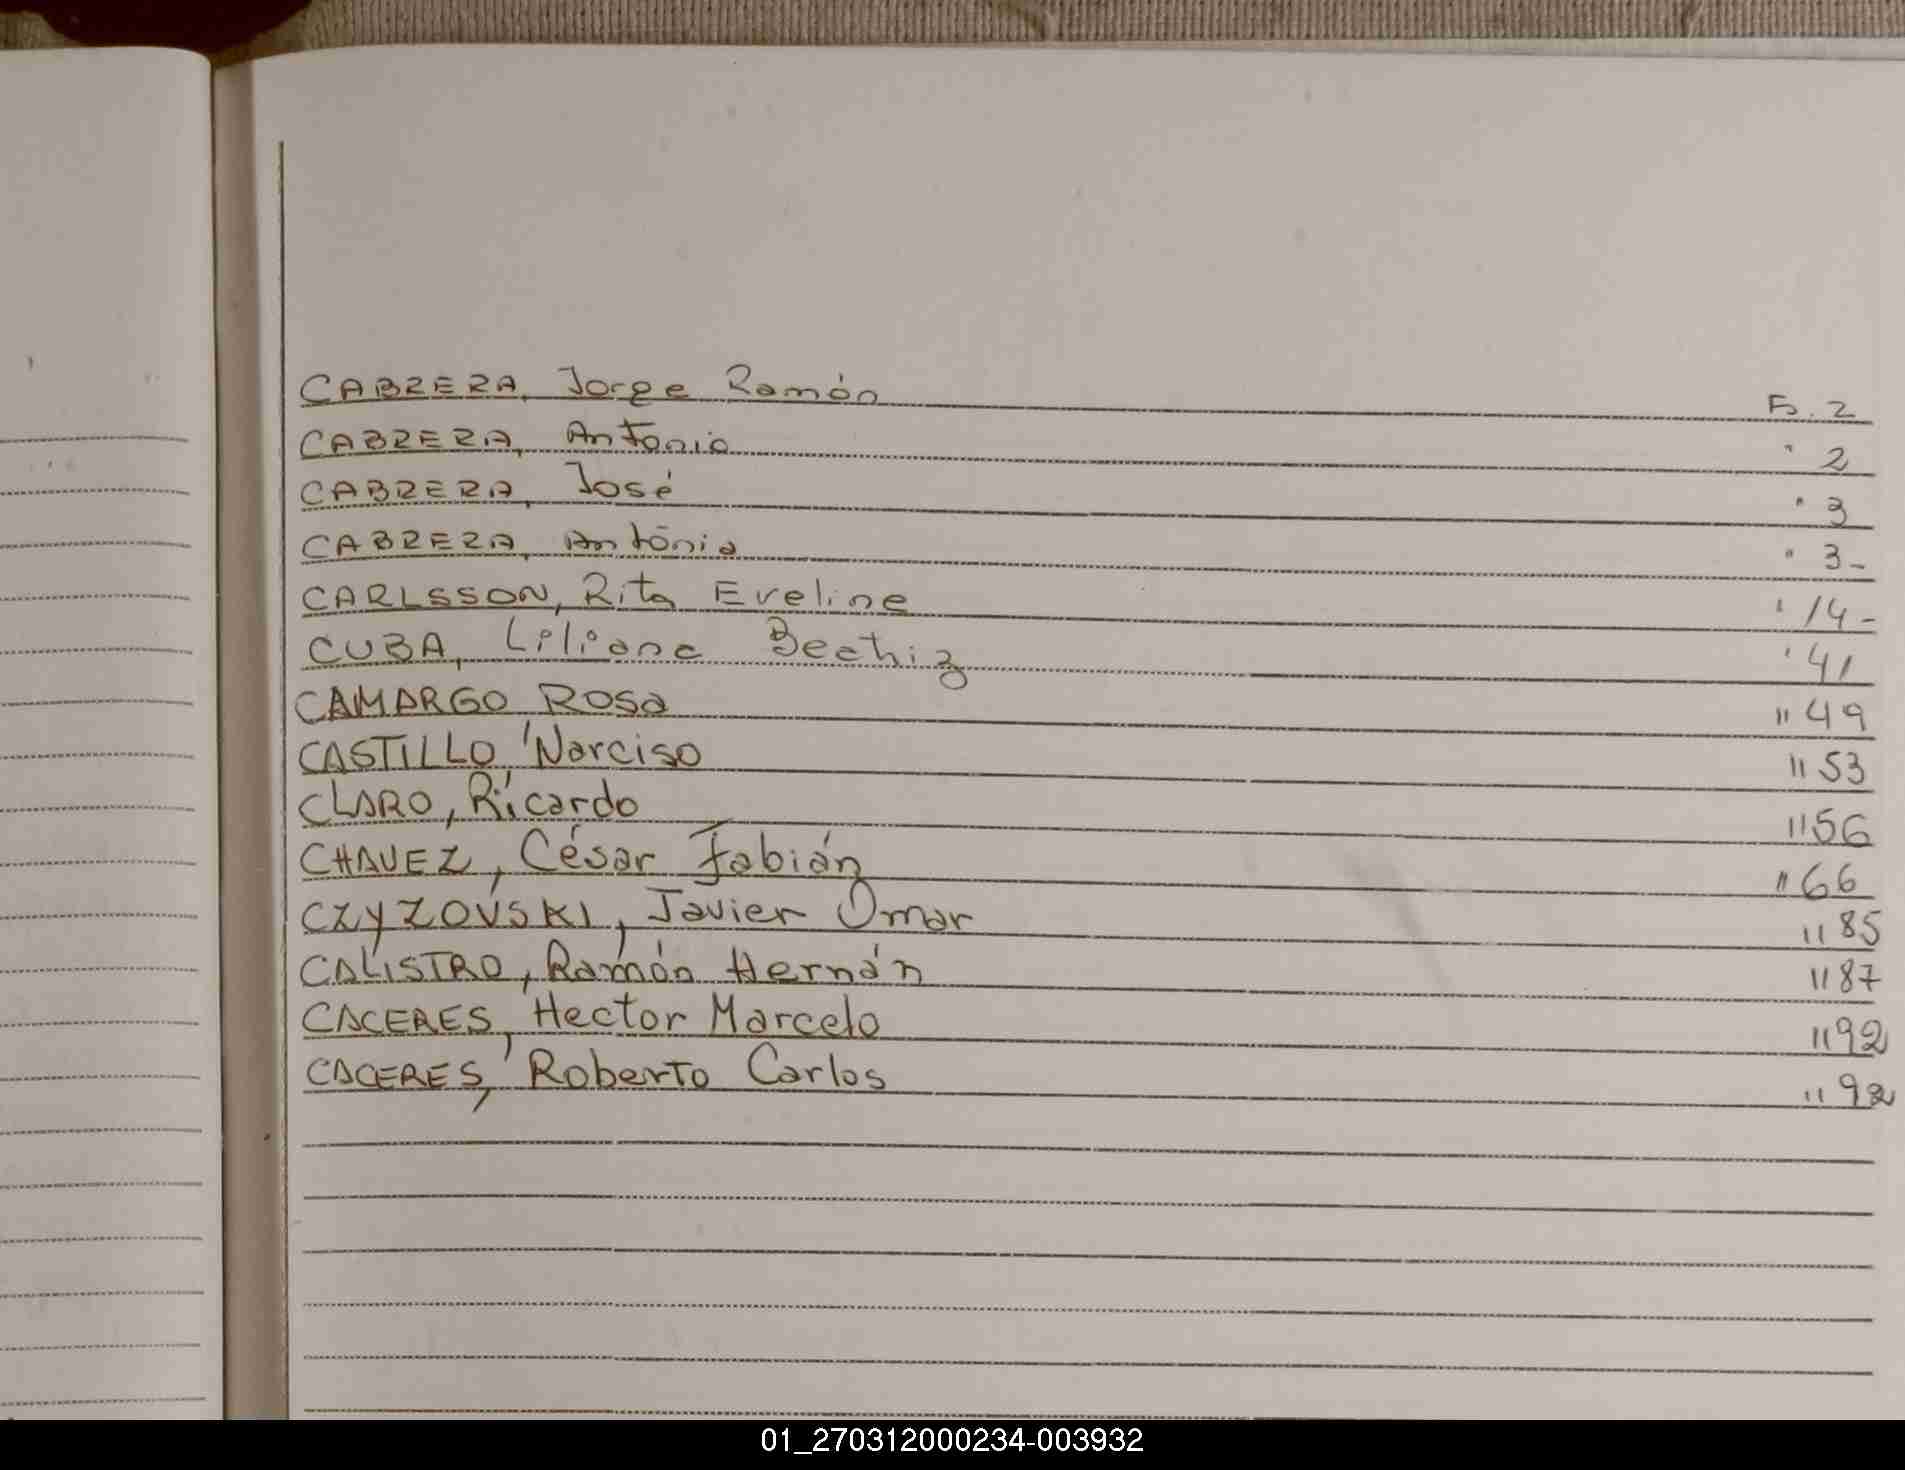 CABRERA, Jorge Ramón Fs. 2
CABRERA, Antonio " 2
CABRERA, José " 3
CABRERA, Antonia " 3-
CARLSSON, Rita Eveline " 14-
CUBA, Liliana Beatriz " 41
CAMARGO Rosa " 49
CASTILLO, Narciso " 53
CLARO, Ricardo " 56
CHAVEZ, César Fabián " 66
CZYZOVSKI, Javier Omar " 85
CALISTRO, Ramón Hernán " 87
CACERES, Hector Marcelo " 92
CACERES, Roberto Carlos " 92
01_270312000234-003932